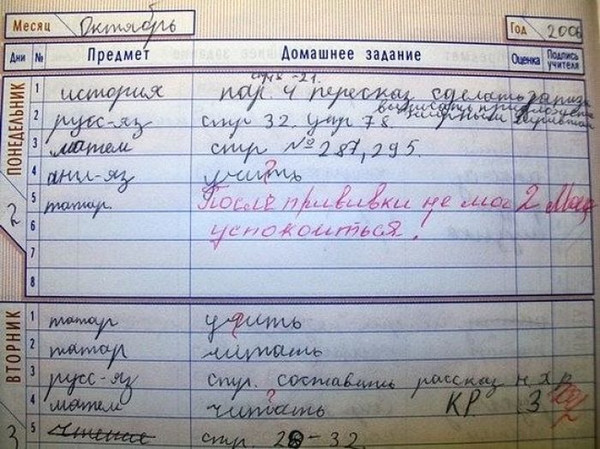 Месяц Октябрь Год 2006
Дни № Предмет Домашнее задание Оценка Подпись учителя
ПОНЕДЕЛЬНИК
2
стр -21.
1 история пар. 4 пересказ сделать записи
выписать
2 русс-яз стр 32. упр 78.
3 матем стр № 287, 295.
4 англ-яз учить ?
5 татар После прививки не мог 2
6 успокоиться!
7
8
ВТОРНИК
3
1 татар учить
2 татар читать
3 русс-яз стр. составить рассказ
4 матем читать ? КР 3
5 чтение стр. 28-32.